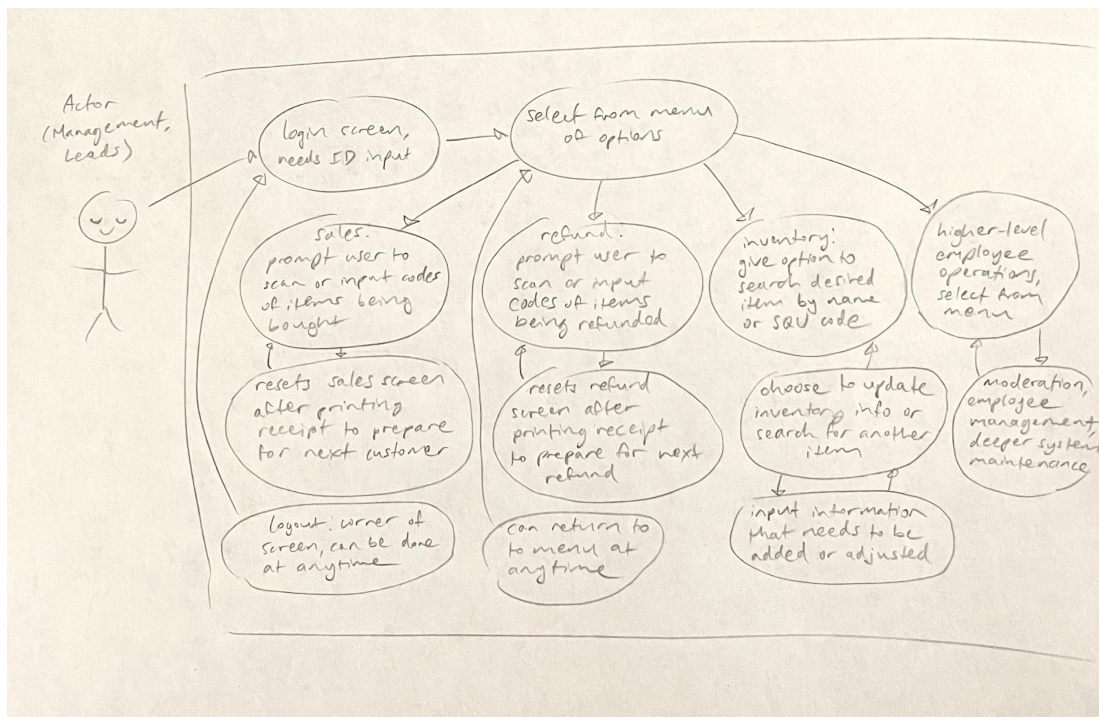 Actor
(Management,
Leads)
login screen,
needs ID input
select from menu
of options
sales:
prompt user to
scan or input codes
of items being
bought
refund:
prompt user to
scan or input
codes of items
being refunded
inventory:
give option to
search desired
item by name
or SQU code
higher-level
employee
operations,
select from
menu
resets sales screen
after printing
receipt to prepare
for next customer
resets refund
screen after
printing receipt
to prepare for next
refund
choose to update
inventory info or
search for another
item
moderation,
employee
management,
deeper system
maintenance
logout: corner of
screen, can be done
at anytime
can return to
to menu at
anytime
input information
that needs to be
added or adjusted